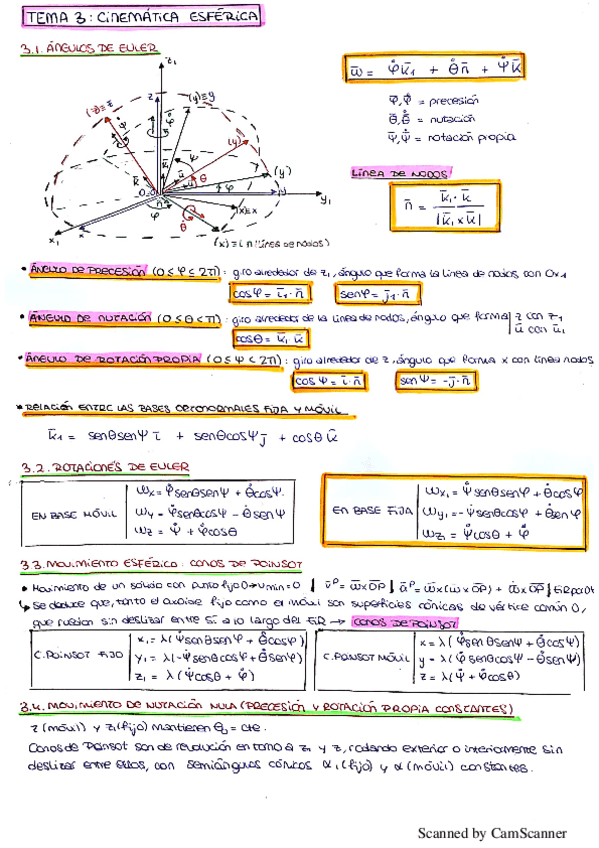 TEMA 3: CINEMÁTICA ESFÉRICA
3.1. ÁNGULOS DE EULER
ω̄ = φ̇k̄1 + θ̇n̄ + ψ̇k̄
φ̄, φ̇ = precesión
θ̄, θ̇ = nutación
ψ̄, ψ̇ = rotación propia
LÍNEA DE NODOS
n̄ = k̄1·k̄ / |k̄1 x k̄|
z1
z
(z)≡z
(y)≡y
(y)
(y')
y
y1
(x)≡x
x1
(x) ≡ i n (línea de nodos)
• ÁNGULO DE PRECESIÓN (0 ≤ φ ≤ 2π): giro alrededor de z1, ángulo que forma la línea de nodos con Ox1
cosφ = ī1·n̄ senφ = j̄1·n̄
• ÁNGULO DE NUTACIÓN (0 ≤ θ ≤ π): giro alrededor de la línea de nodos, ángulo que forma | z con z1
| ū con ū1
cosθ = k̄1·k̄
• ÁNGULO DE ROTACIÓN PROPIA (0 ≤ ψ ≤ 2π): giro alrededor de z, ángulo que forma x con línea nodos
cosψ = ī·n̄ senψ = -j̄·n̄
• RELACIÓN ENTRE LAS BASES ORTONORMALES FIJA Y MÓVIL
k̄1 = senθsenψ ī + senθcosψ j̄ + cosθ k̄
3.2. ROTACIONES DE EULER
EN BASE MÓVIL
ωx = φ̇senθsenψ + θ̇cosψ.
ωy = φ̇senθcosψ - θ̇senψ
ωz = ψ̇ + φ̇cosθ
EN BASE FIJA
ωx1 = ψ̇senθsenφ + θ̇cosφ
ωy1 = -ψ̇senθcosφ + θ̇senφ
ωz1 = ψ̇cosθ + φ̇
3.3. MOVIMIENTO ESFÉRICO: CONOS DE POINSOT
• Movimiento de un sólido con punto fijo O → vmín = 0 | v̄P = ω̄xOP | āP = ω̄x(ω̄xOP) + ω̄̇xOP | EIR por O
↳ Se deduce que, tanto el axoide fijo como el móvil son superficies cónicas de vértice común O,
que ruedan sin deslizar entre sí a lo largo del EIR → CONOS DE POINSOT
C. POINSOT FIJO
x1 = λ(ψ̇senθsenφ + θ̇cosφ)
y1 = λ(-ψ̇senθcosφ + θ̇senφ)
z1 = λ(ψ̇cosθ + φ̇)
C. POINSOT MÓVIL
x = λ(φ̇senθsenψ + θ̇cosψ)
y = λ(φ̇senθcosψ - θ̇senψ)
z = λ(ψ̇ + φ̇cosθ)
3.4. MOVIMIENTO DE NUTACIÓN NULA (PRECESIÓN Y ROTACIÓN PROPIA CONSTANTES)
z (móvil) y z1 (fijo) mantienen θ0 = cte.
Conos de Poinsot son de revolución en torno a z1 y z, rodando exterior o interiormente sin
deslizar entre ellos, con semiángulos cónicos α1 (fijo) y α (móvil) constantes.
Scanned by CamScanner